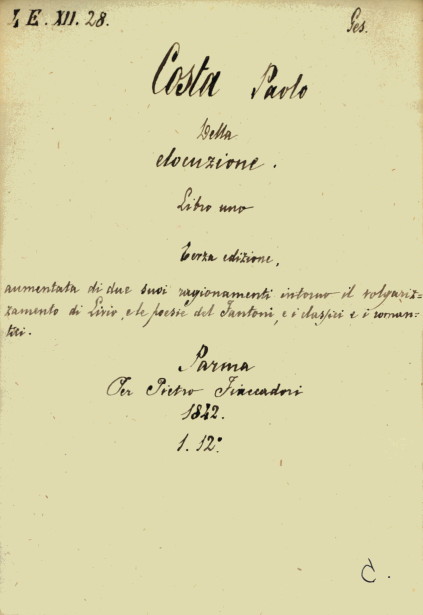 I E. XII. 28. Ges.
Costa Paolo
Della
elocuzione.
Libro uno
terza edizione,
aumentata di due suoi ragionamenti intorno il volgariz=
zamento di Livio, e le poesie del Fantoni, e i classici e i roman=
tici.
Parma
Per Pietro Fiaccadori
1842.
1. 12°.
C.